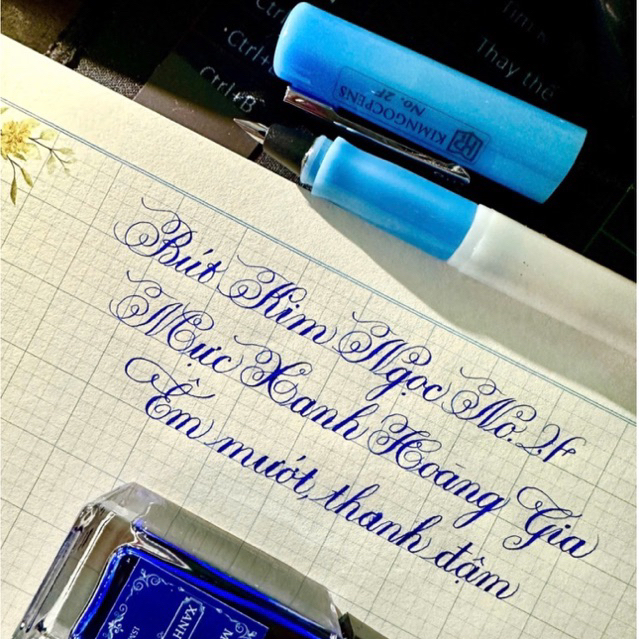 Ctrl+B
Thay thế
KIMNGOCPENS
No. 2F
Bút Kim Ngọc No. 2F
Mực Xanh Hoàng Gia
Êm mướt, thanh đậm
XANH